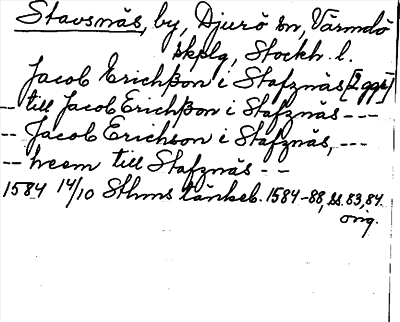 Stavsnäs, by, Djurö sn, Värmdö
skplg, Stockh. l.
Jacob Erichßon i Stafznäs [2 ggr]
-- till Jacob Erichßon i Stafznäs ---
-- Jacob Erichson i Stafznäs, ---
-- heem till Stafznäs --
1584 14/10 Sthms tänkeb. 1584-88, ss. 83, 84.
orig.